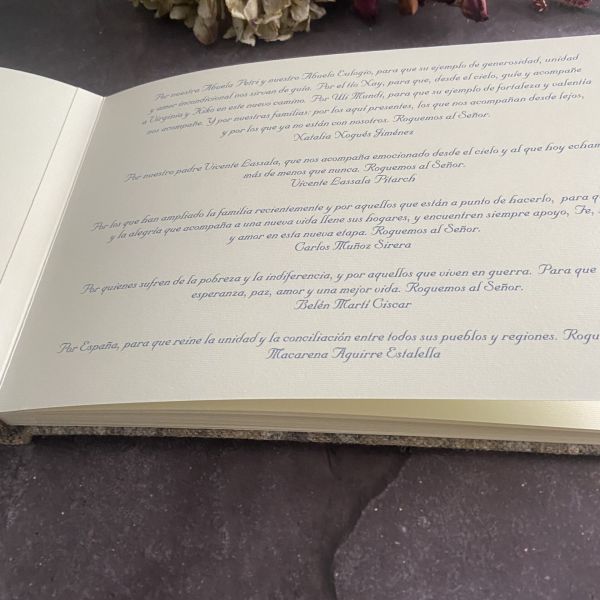 Por nuestra Abuela Petri y nuestro Abuelo Eulogio, para que su ejemplo de generosidad, unidad
y amor incondicional nos sirvan de guía. Por el tío Xay, para que, desde el cielo, guíe y acompañe
a Virginia y Xibo en este nuevo camino. Por Uli Mundi, para que su ejemplo de fortaleza y valentía
nos acompañe. Y por nuestras familias: por los aquí presentes, los que nos acompañan desde lejos,
y por los que ya no están con nosotros. Roguemos al Señor.
Natalia Nogués Jiménez
Por nuestro padre Vicente Lassala, que nos acompaña emocionado desde el cielo y al que hoy echam
más de menos que nunca. Roguemos al Señor.
Vicente Lassala Pitarch
Por los que han ampliado la familia recientemente y por aquellos que están a punto de hacerlo, para q
y la alegría que acompaña a una nueva vida llene sus hogares, y encuentren siempre apoyo, Fe,
y amor en esta nueva etapa. Roguemos al Señor.
Carlos Muñoz Sirera
Por quienes sufren de la pobreza y la indiferencia, y por aquellos que viven en guerra. Para que
esperanza, paz, amor y una mejor vida. Roguemos al Señor.
Belén Martí Ciscar
Por España, para que reine la unidad y la conciliación entre todos sus pueblos y regiones. Rogu
Macarena Aguirre Estalella